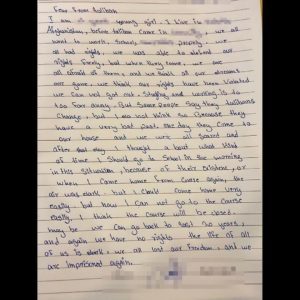 Fear From taliban
I am a young girl. I live in
Afghanistan, before taliban Came in we all
went to work, School, properly, we
all had rights we was able to defend our
rights freely, but when they came, we are
all afraid of them, and we think all our dreams
are gone, we think our rights have been Violated
we Can not get out. Studing and working is to
too far away. But Some People Say they talibans
Change, but I do not think so. Because they
have a very bad past one day they Come to
our house and we were all scared and
after that day I thought a bout what kind
of time I should go to School in the morning
in this situation, because of their existent, or
when I Came home from Course again, the
air was dark. but I could Come home very
easily but how I Can not go to the Course
easily. I think the Course will be closed.
may be we Can go back to last 20 years,
and again we have no rights the life of all
of us is dark, we all lost our Freedom, and we
are imprisoned again.